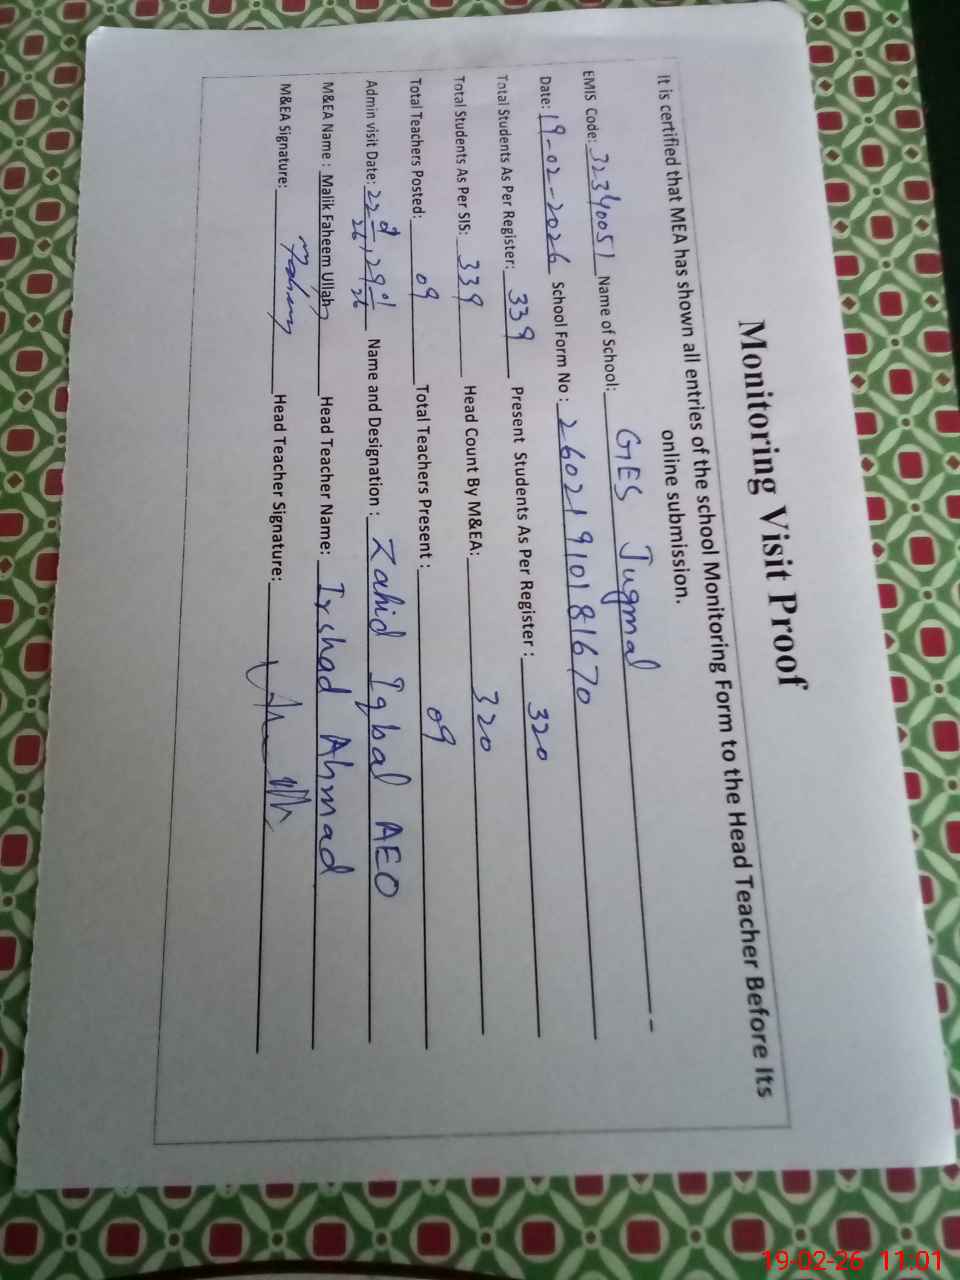 Monitoring Visit Proof
It is certified that MEA has shown all entries of the school Monitoring Form to the Head Teacher Before Its
online submission.
EMIS Code: 32340051 Name of School: GES Jugmal
Date: 19-02-2026 School Form No : 26021910181670
Total Students As Per Register: 339 Present Students As Per Register : 320
Total Students As Per SIS: 339 Head Count By M&EA: 320
Total Teachers Posted: 09 Total Teachers Present : 09
Admin visit Date: Name and Designation : Zahid Iqbal AEO
M&EA Name : Malik Faheem Ullah Head Teacher Name: Irshad Ahmad
M&EA Signature: Head Teacher Signature:
19-02-26 11:01